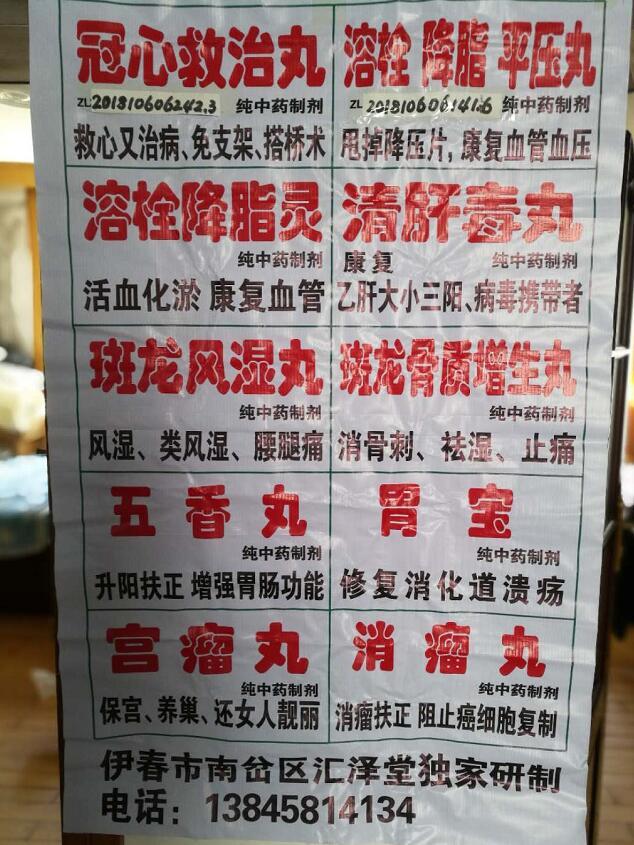 冠心救治丸
ZL201810606242.3 纯中药制剂
救心又治病、免支架、搭桥术
溶栓 降脂 平压丸
ZL 201810606141.6 纯中药制剂
甩掉降压片, 康复血管血压
溶栓降脂灵
纯中药制剂
活血化淤 康复血管
清肝毒丸
康复 纯中药制剂
乙肝大小三阳、病毒携带者
斑龙风湿丸
纯中药制剂
风湿、类风湿、腰腿痛
斑龙骨质增生丸
纯中药制剂
消骨刺、祛湿、止痛
五香丸
纯中药制剂
升阳扶正 增强胃肠功能
胃宝
纯中药制剂
修复消化道溃疡
宫瘤丸
纯中药制剂
保宫、养巢、还女人靓丽
消瘤丸
纯中药制剂
消瘤扶正 阻止癌细胞复制
伊春市南岔区汇泽堂独家研制
电话：13845814134